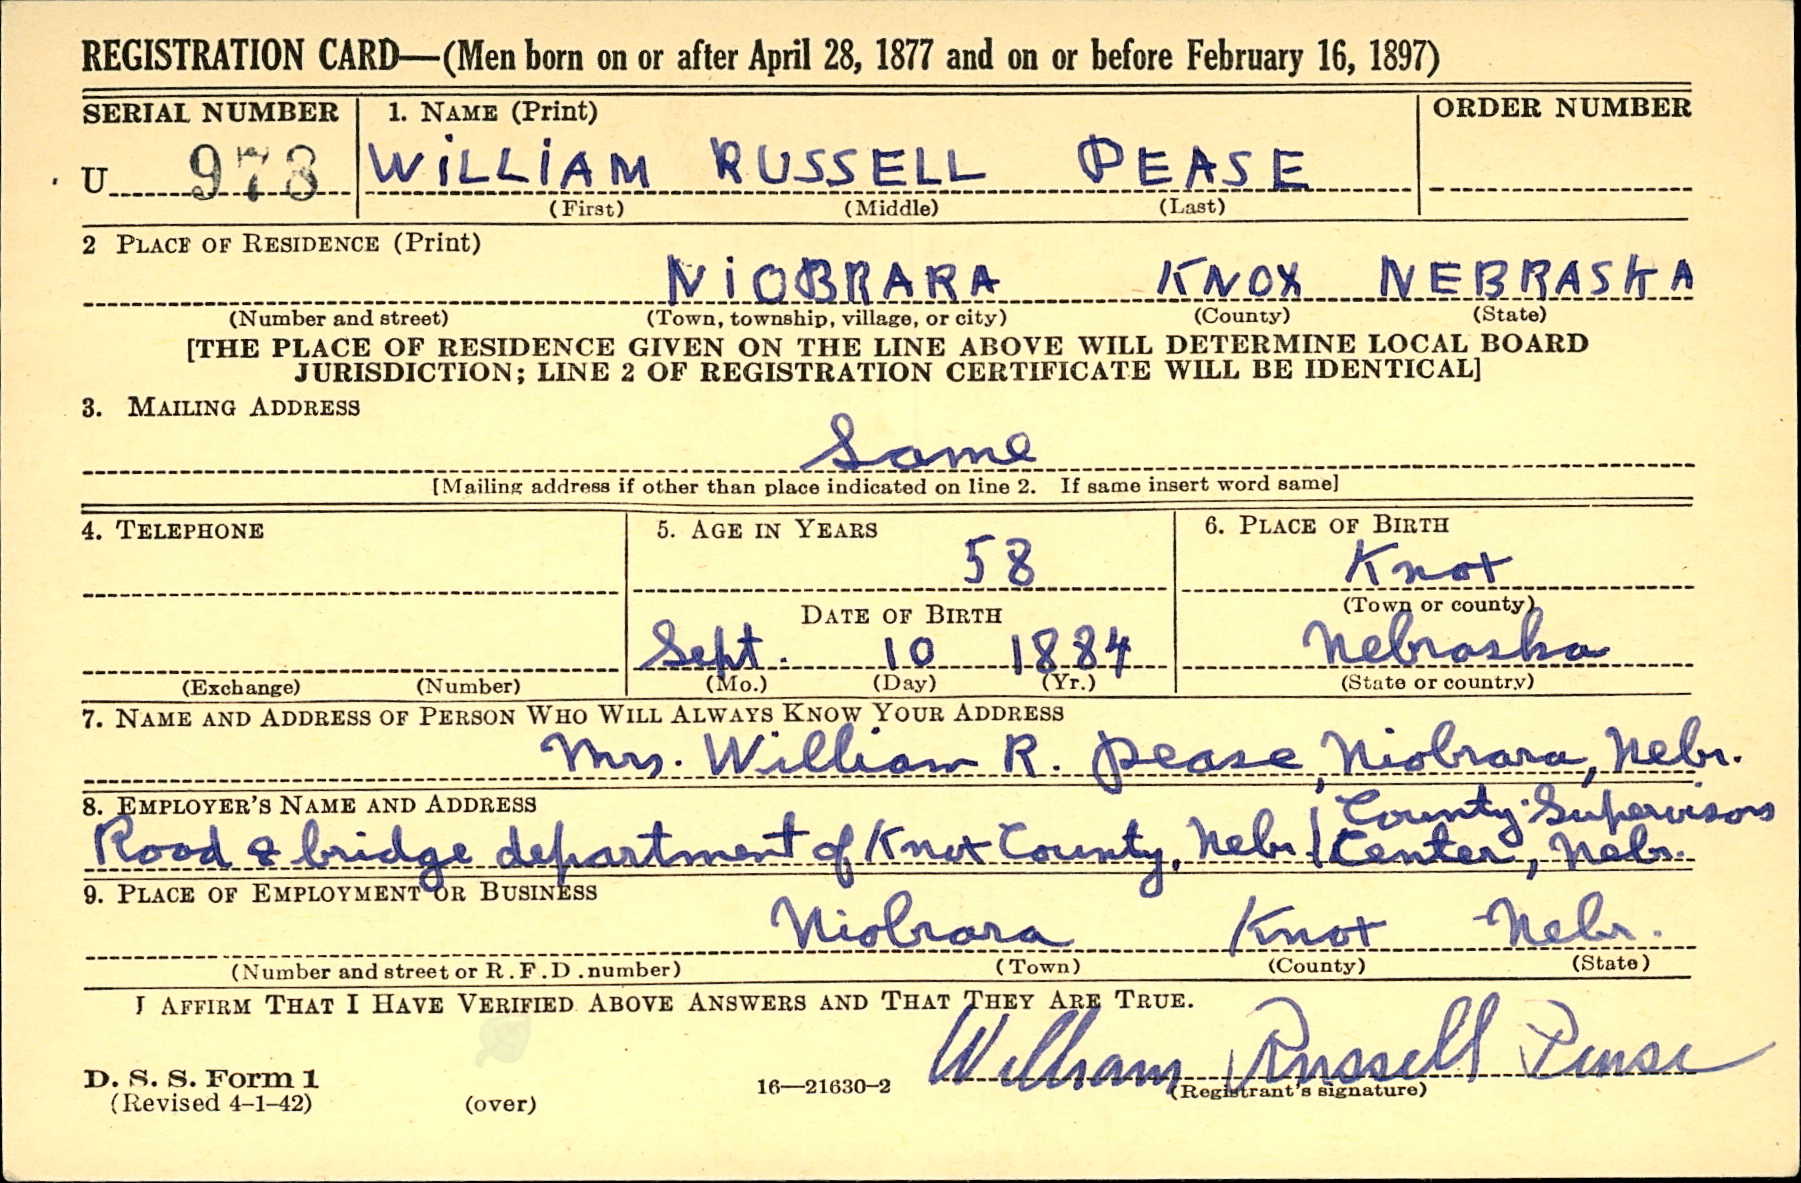 REGISTRATION CARD—(Men born on or after April 28, 1877 and on or before February 16, 1897)
SERIAL NUMBER
1. NAME (Print)
ORDER NUMBER
U 973
WILLIAM RUSSELL PEASE
(First) (Middle) (Last)
2 PLACE OF RESIDENCE (Print)
NIOBRARA KNOX NEBRASKA
(Number and street) (Town, township, village, or city) (County) (State)
[THE PLACE OF RESIDENCE GIVEN ON THE LINE ABOVE WILL DETERMINE LOCAL BOARD
JURISDICTION; LINE 2 OF REGISTRATION CERTIFICATE WILL BE IDENTICAL]
3. MAILING ADDRESS
Same
[Mailing address if other than place indicated on line 2. If same insert word same]
4. TELEPHONE
(Exchange) (Number)
5. AGE IN YEARS
58
DATE OF BIRTH
Sept. 10 1884
(Mo.) (Day) (Yr.)
6. PLACE OF BIRTH
Knox
(Town or county)
Nebraska
(State or country)
7. NAME AND ADDRESS OF PERSON WHO WILL ALWAYS KNOW YOUR ADDRESS
Mrs. William R. Pease, Niobrara, Nebr.
8. EMPLOYER'S NAME AND ADDRESS
Road & bridge department of Knox County, Nebr
County Supervisors
Center, Nebr.
9. PLACE OF EMPLOYMENT OR BUSINESS
Niobrara Knox Nebr.
(Number and street or R.F.D. number) (Town) (County) (State)
I AFFIRM THAT I HAVE VERIFIED ABOVE ANSWERS AND THAT THEY ARE TRUE.
William Russell Pease
(Registrant's signature)
D. S. S. Form 1
(Revised 4-1-42) (over)
16—21630-2